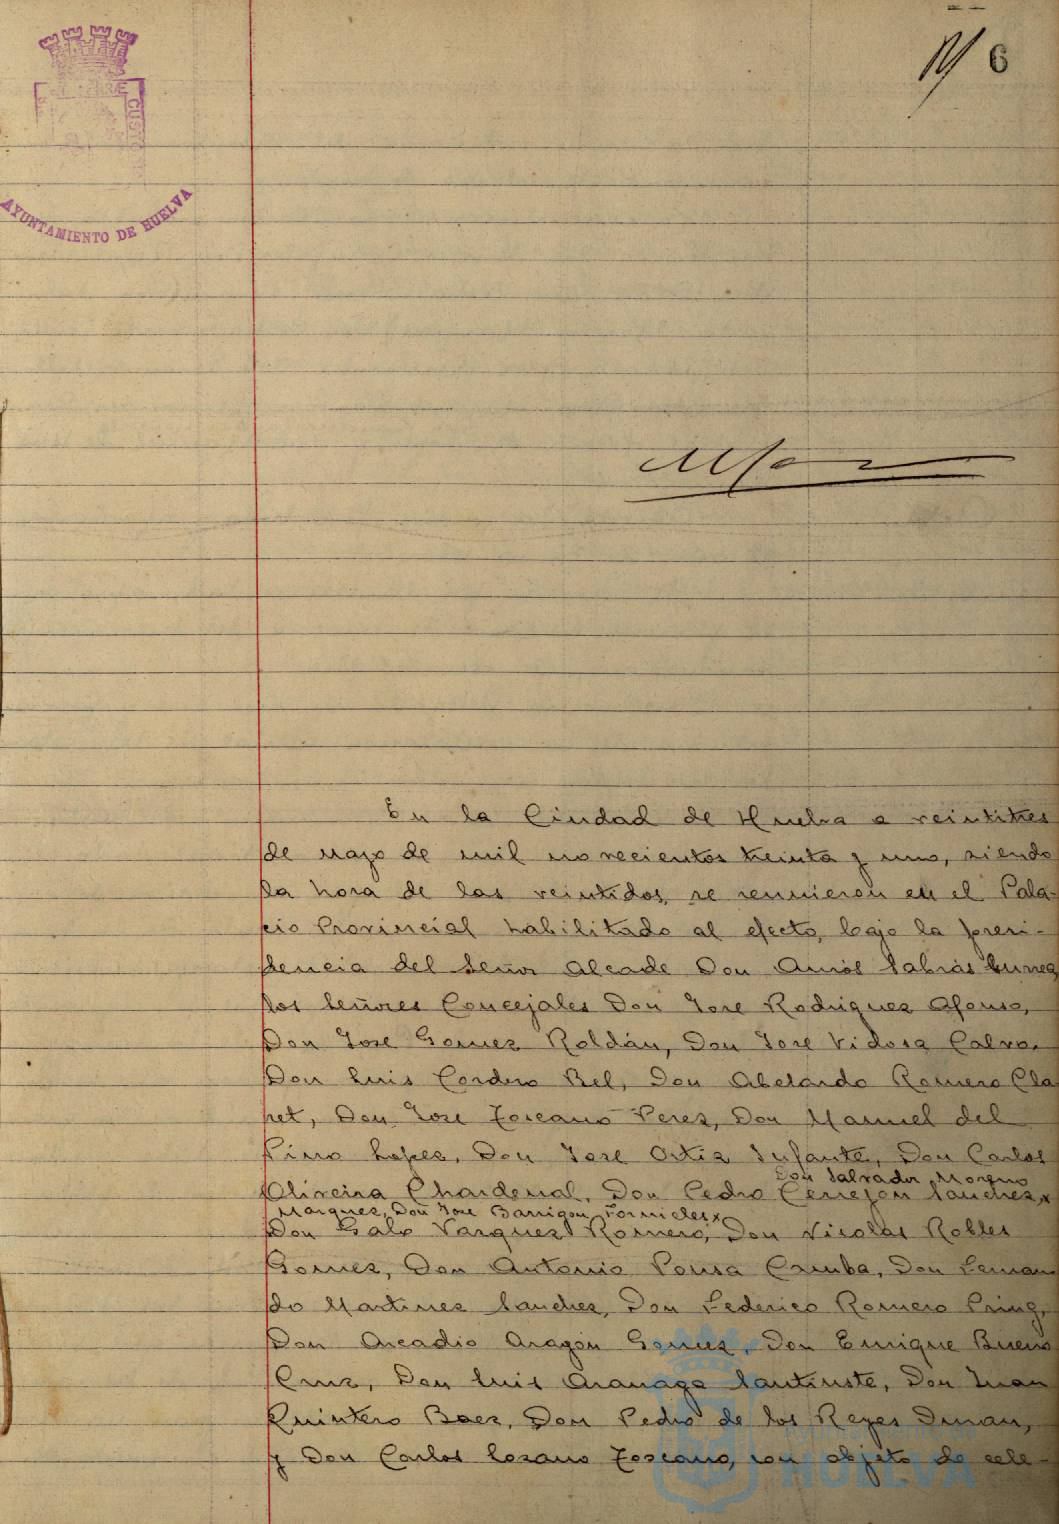 6
AYUNTAMIENTO DE HUELVA
En la Ciudad de Huelva a veintitres
de mayo de mil novecientos treinta y uno, siendo
la hora de las veintidos, se reunieron en el Pala-
cio Provincial habilitado al efecto, bajo la presi-
dencia del Señor Alcade Don Amós Sabrás
los Señores Concejales Don Jose Rodriguez Afonso,
Don Jose Gomez Roldán, Don Jose Vidosa Calvo,
Don Luis Cordero Bel, Don Abelardo Romero Cla
ret, Don Jose Toscano Perez, Don Manuel del
Pino Lopez, Don Jose Ortiz Infante, Don Carlos
Don Salvador Moreno
Oliveira Chardenal, Don Pedro Cerrejon Sanchez,
Marquez, Don Jose Barrigon Fornieles
Don Galo Vazquez Romero, Don Nicolas Robles
Gomez, Don Antonio Pousa Camba, Don Fernan
do Martinez Sanchez, Don Federico Romero Pring,
Don Arcadio Aragón Gomez, Don Enrique Bueno
Cruz, Don Luis Aranaga Santiuste, Don Juan
Quintero Baez, Don Pedro de los Reyes Duran,
y Don Carlos Lozano Toscano, con objeto de cele-
HUELVA